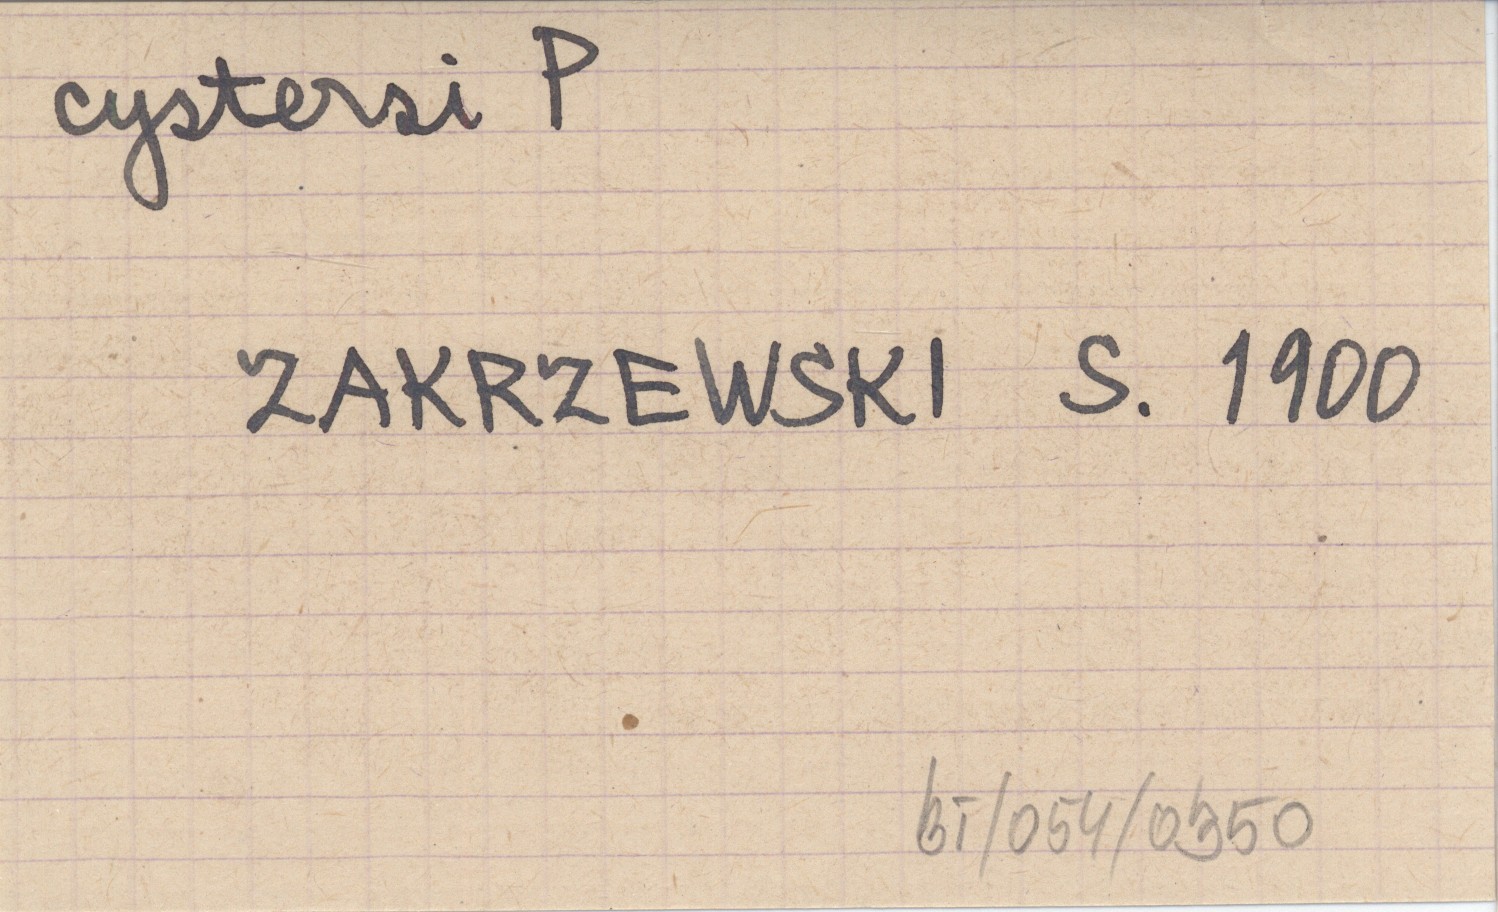 cystersi P
ZAKRZEWSKI S. 1900
BT/054/0350